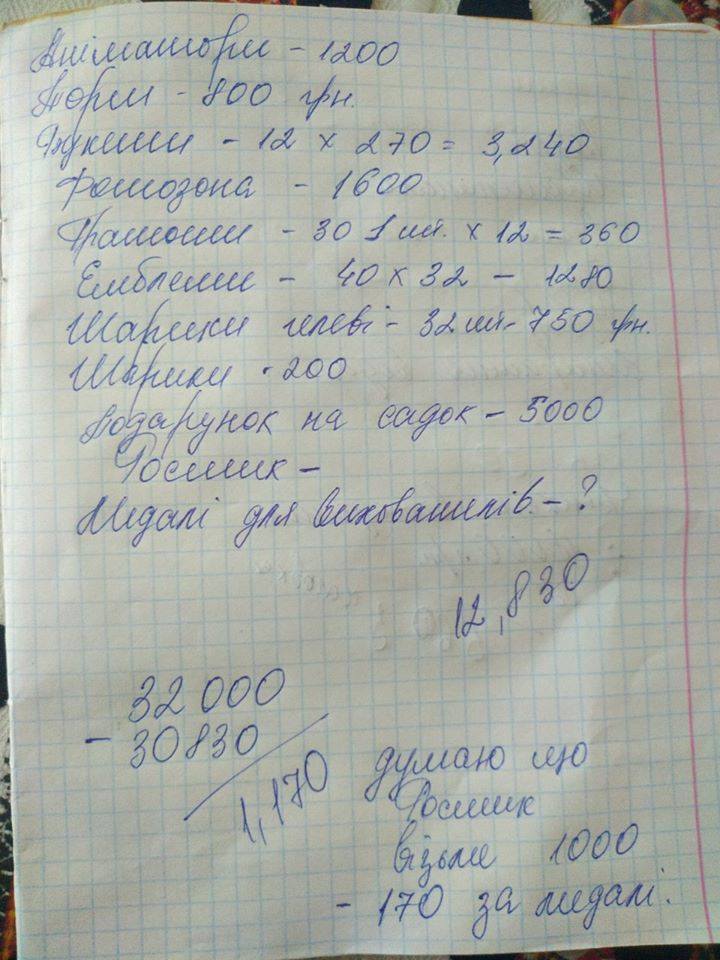 Аніматори - 1200
Торт - 800 грн.
Букети - 12 х 270 = 3,240
Фотозона - 1600
Грамоти - 30 1 шт. х 12 = 360
Емблеми - 40 х 32 - 1280
Шарики гелеві - 32 шт - 750 грн.
Шарики - 200
Подарунок на садок - 5000
Ростик -
Медалі для вихователів - ?
12,830
32 000
- 30830
1,170
думаю що
Ростик
візьме 1000
- 170 за медалі.